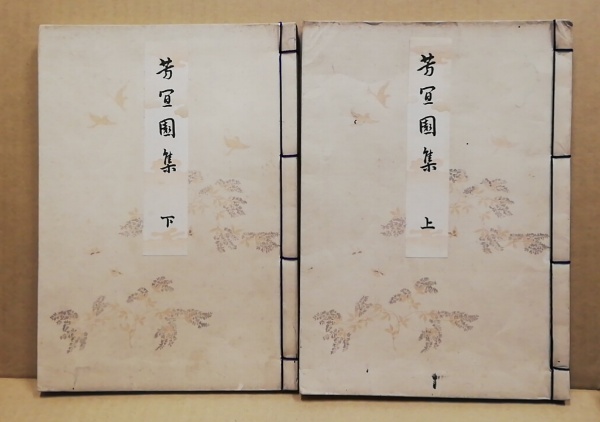 芳宜園集 上
芳宜園集 下